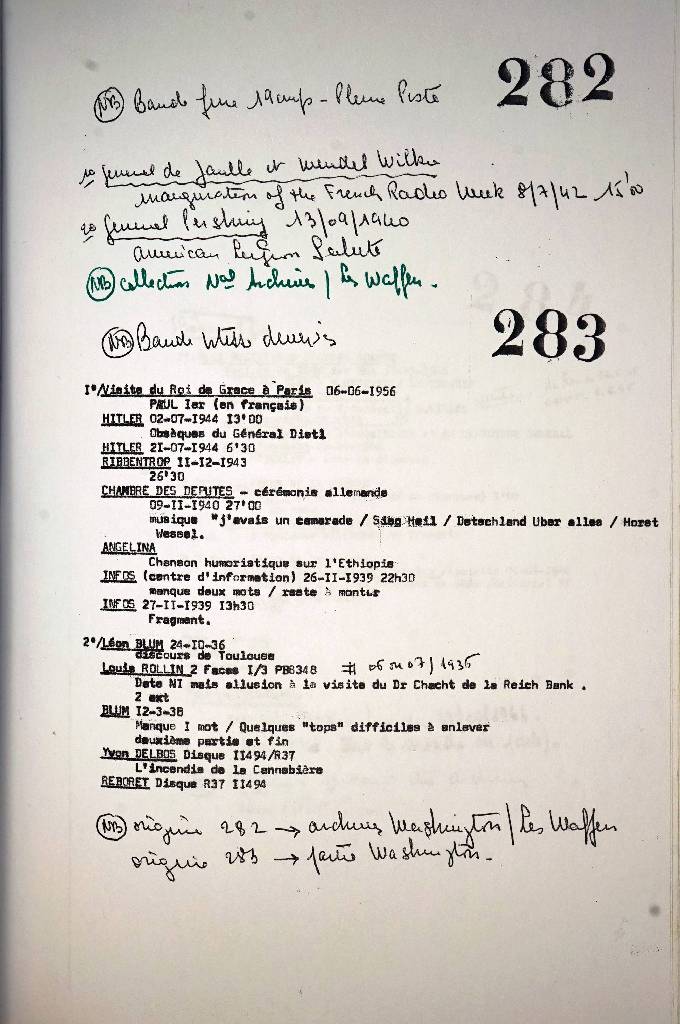 282
NB Bande fine 19 cm/s - Pleine Piste
1° General de Gaulle et Wendel Wilkie
inauguration of the French Radio Week 8/7/42 15'00
2° General Pershing 13/09/1940
American Legion Salute
NB collection Nal Archives / Les Waffen.
283
NB Bande vitesse
I°/Visite du Roi de Grece à Paris 06-06-1956
PAUL Ier (en français)
HITLER 02-07-1944 13'00
Obsèques du Général Dietl
HITLER 2I-07-1944 6'30
RIBBENTROP II-I2-1943
26'30
CHAMBRE DES DEPUTES - cérémonie allemande
09-II-1940 27'00
musique "j'avais un camarade / Sieg Heil / Detschland Uber alles / Horst
Wessel.
ANGELINA
Chanson humoristique sur l'Ethiopie
INFOS (centre d'information) 26-II-I939 22h30
manque deux mots / reste à monter
INFOS 27-II-I939 I3h30
Fragment.
2°/Léon BLUM 24-IO-36
discours de Toulouse
Louis ROLLIN 2 Faces I/3 PB8348 # 06 ou 07/1936
Date NI mais allusion à la visite du Dr Chacht de la Reich Bank .
2 ext
BLUM I2-3-38
Manque I mot / Quelques "tops" difficiles à enlever
deuxième partie et fin
Yvon DELBOS Disque II494/R37
L'incendie de la Cannebière
REBORET Disque R37 II494
NB origine 282 → archives Washington / Les Waffen
origine 283 → partie Washington.